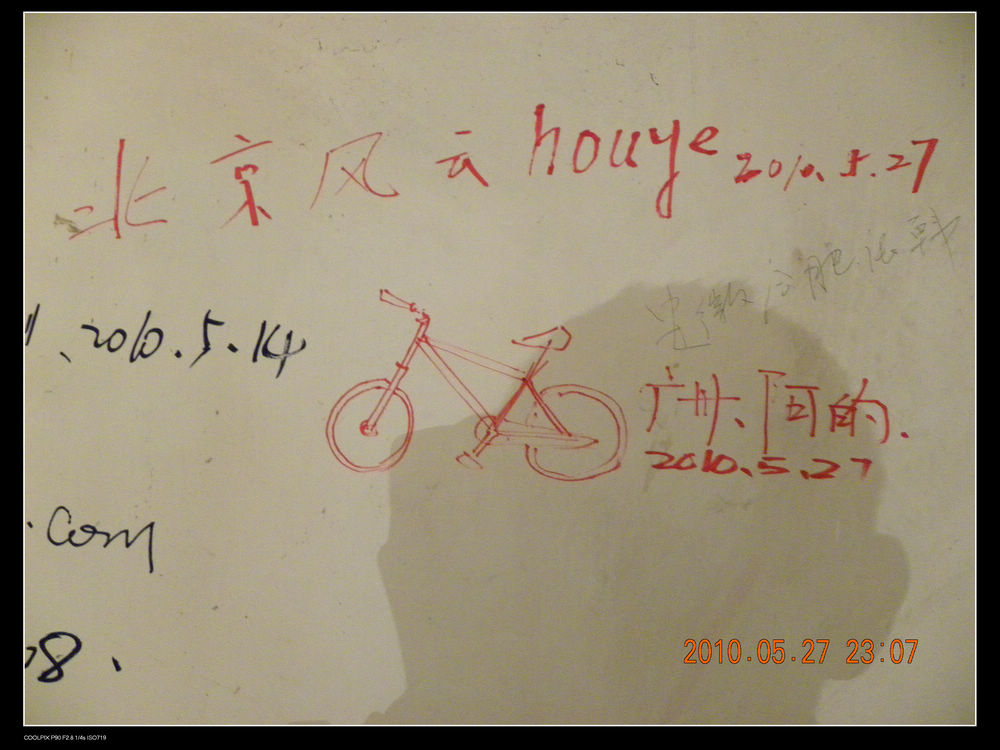 北京风云 houye 2010.5.27
、2010.5.14
广州、阿的.
2010.5.27
.com
08、
2010.05.27 23:07
COOLPIX P90 F2.8 1/4s ISO719